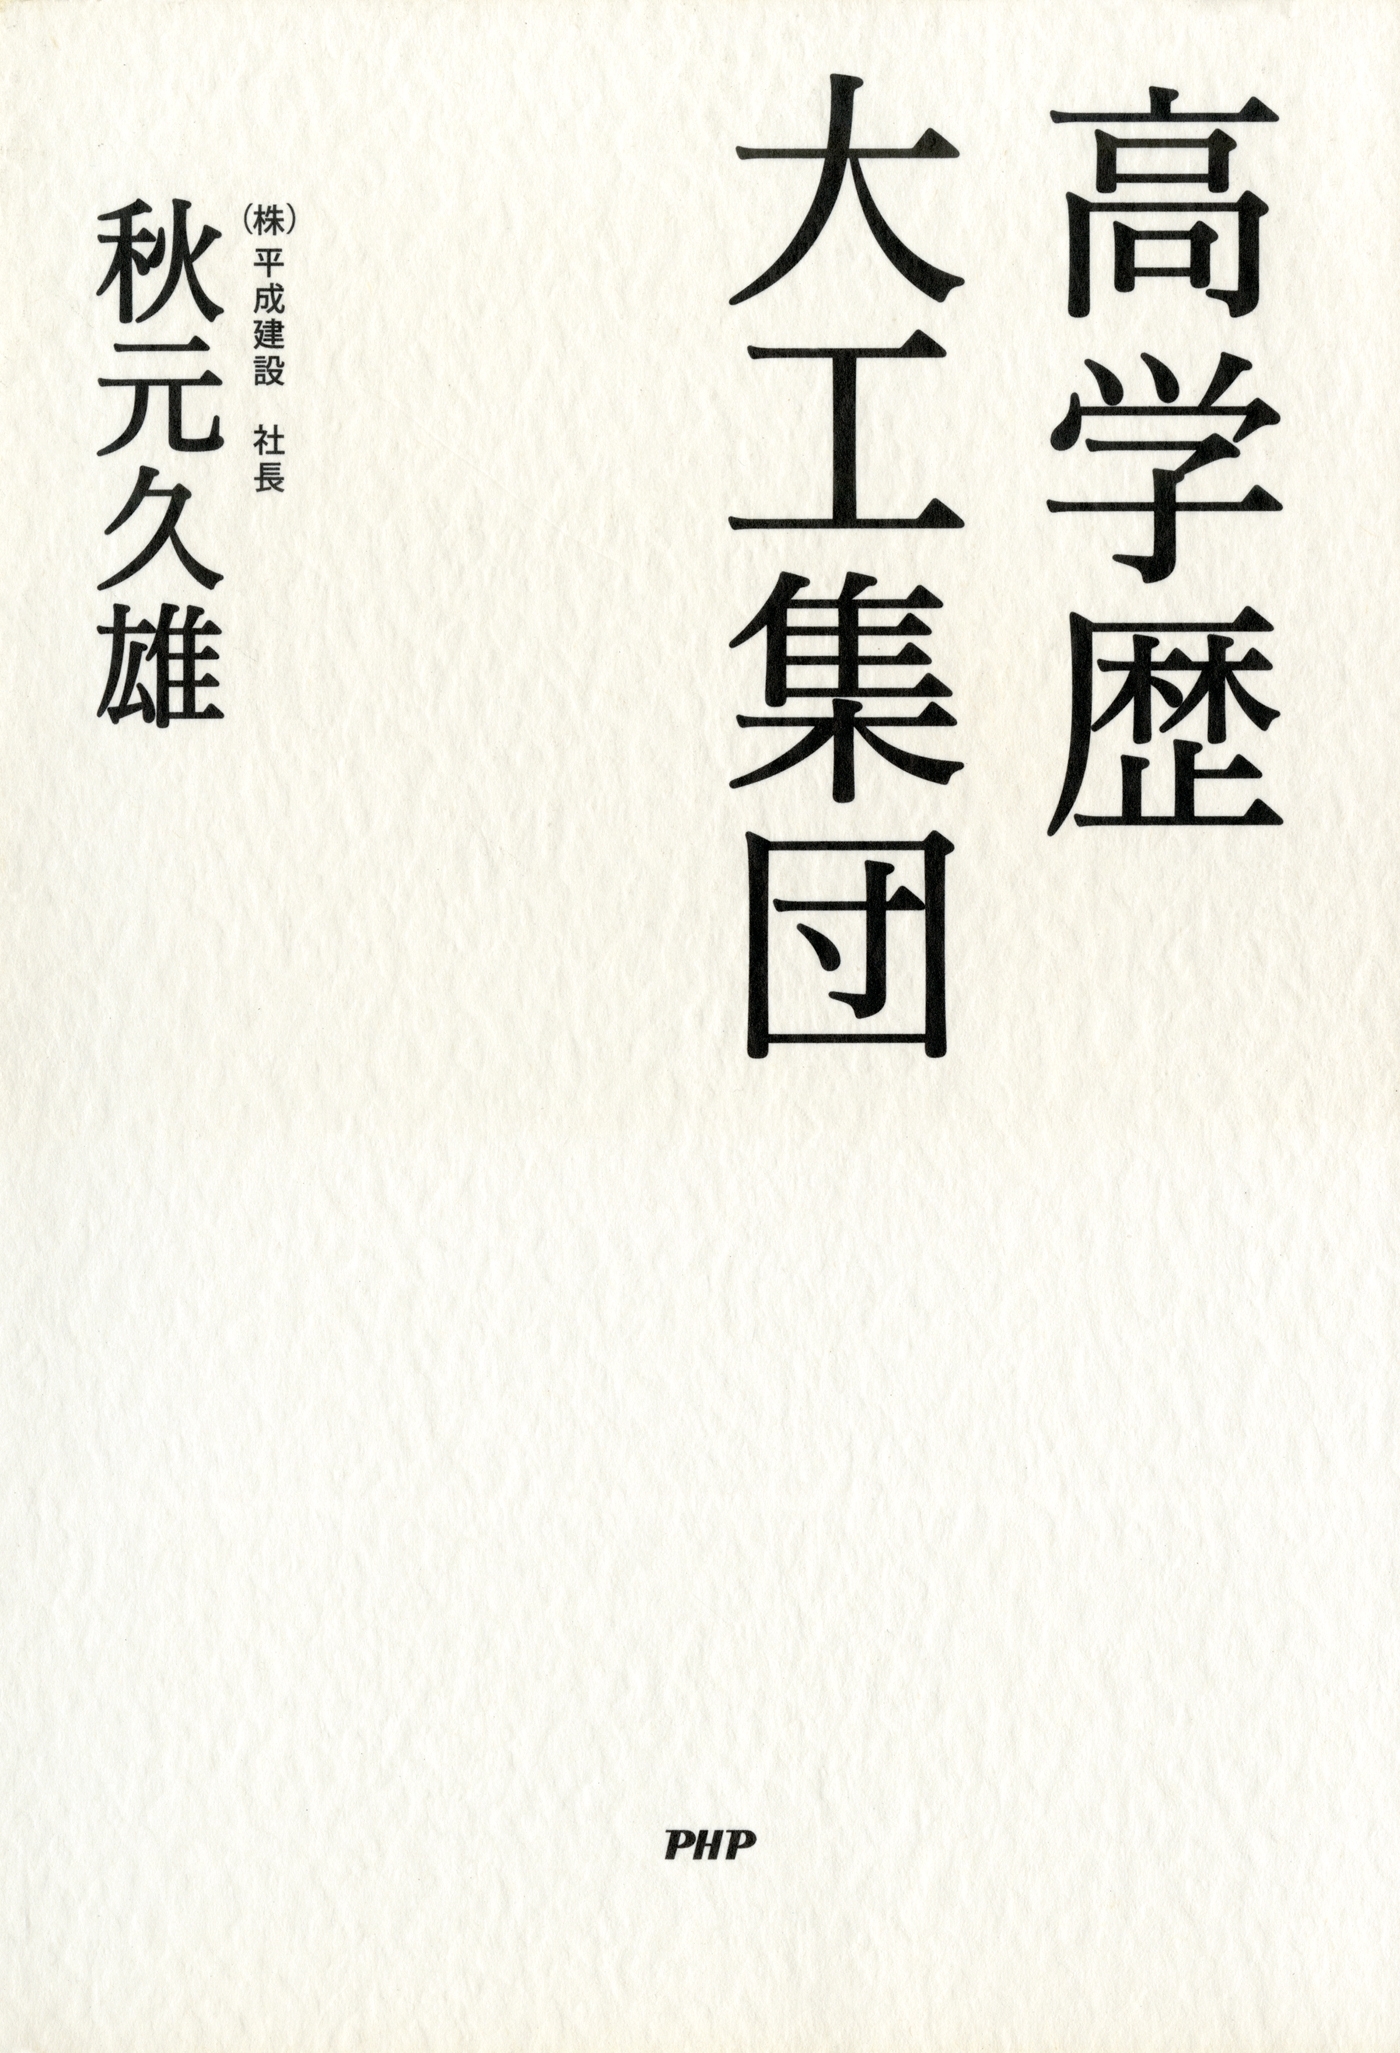 高学歴
大工集団
(株)平成建設 社長
秋元久雄
PHP